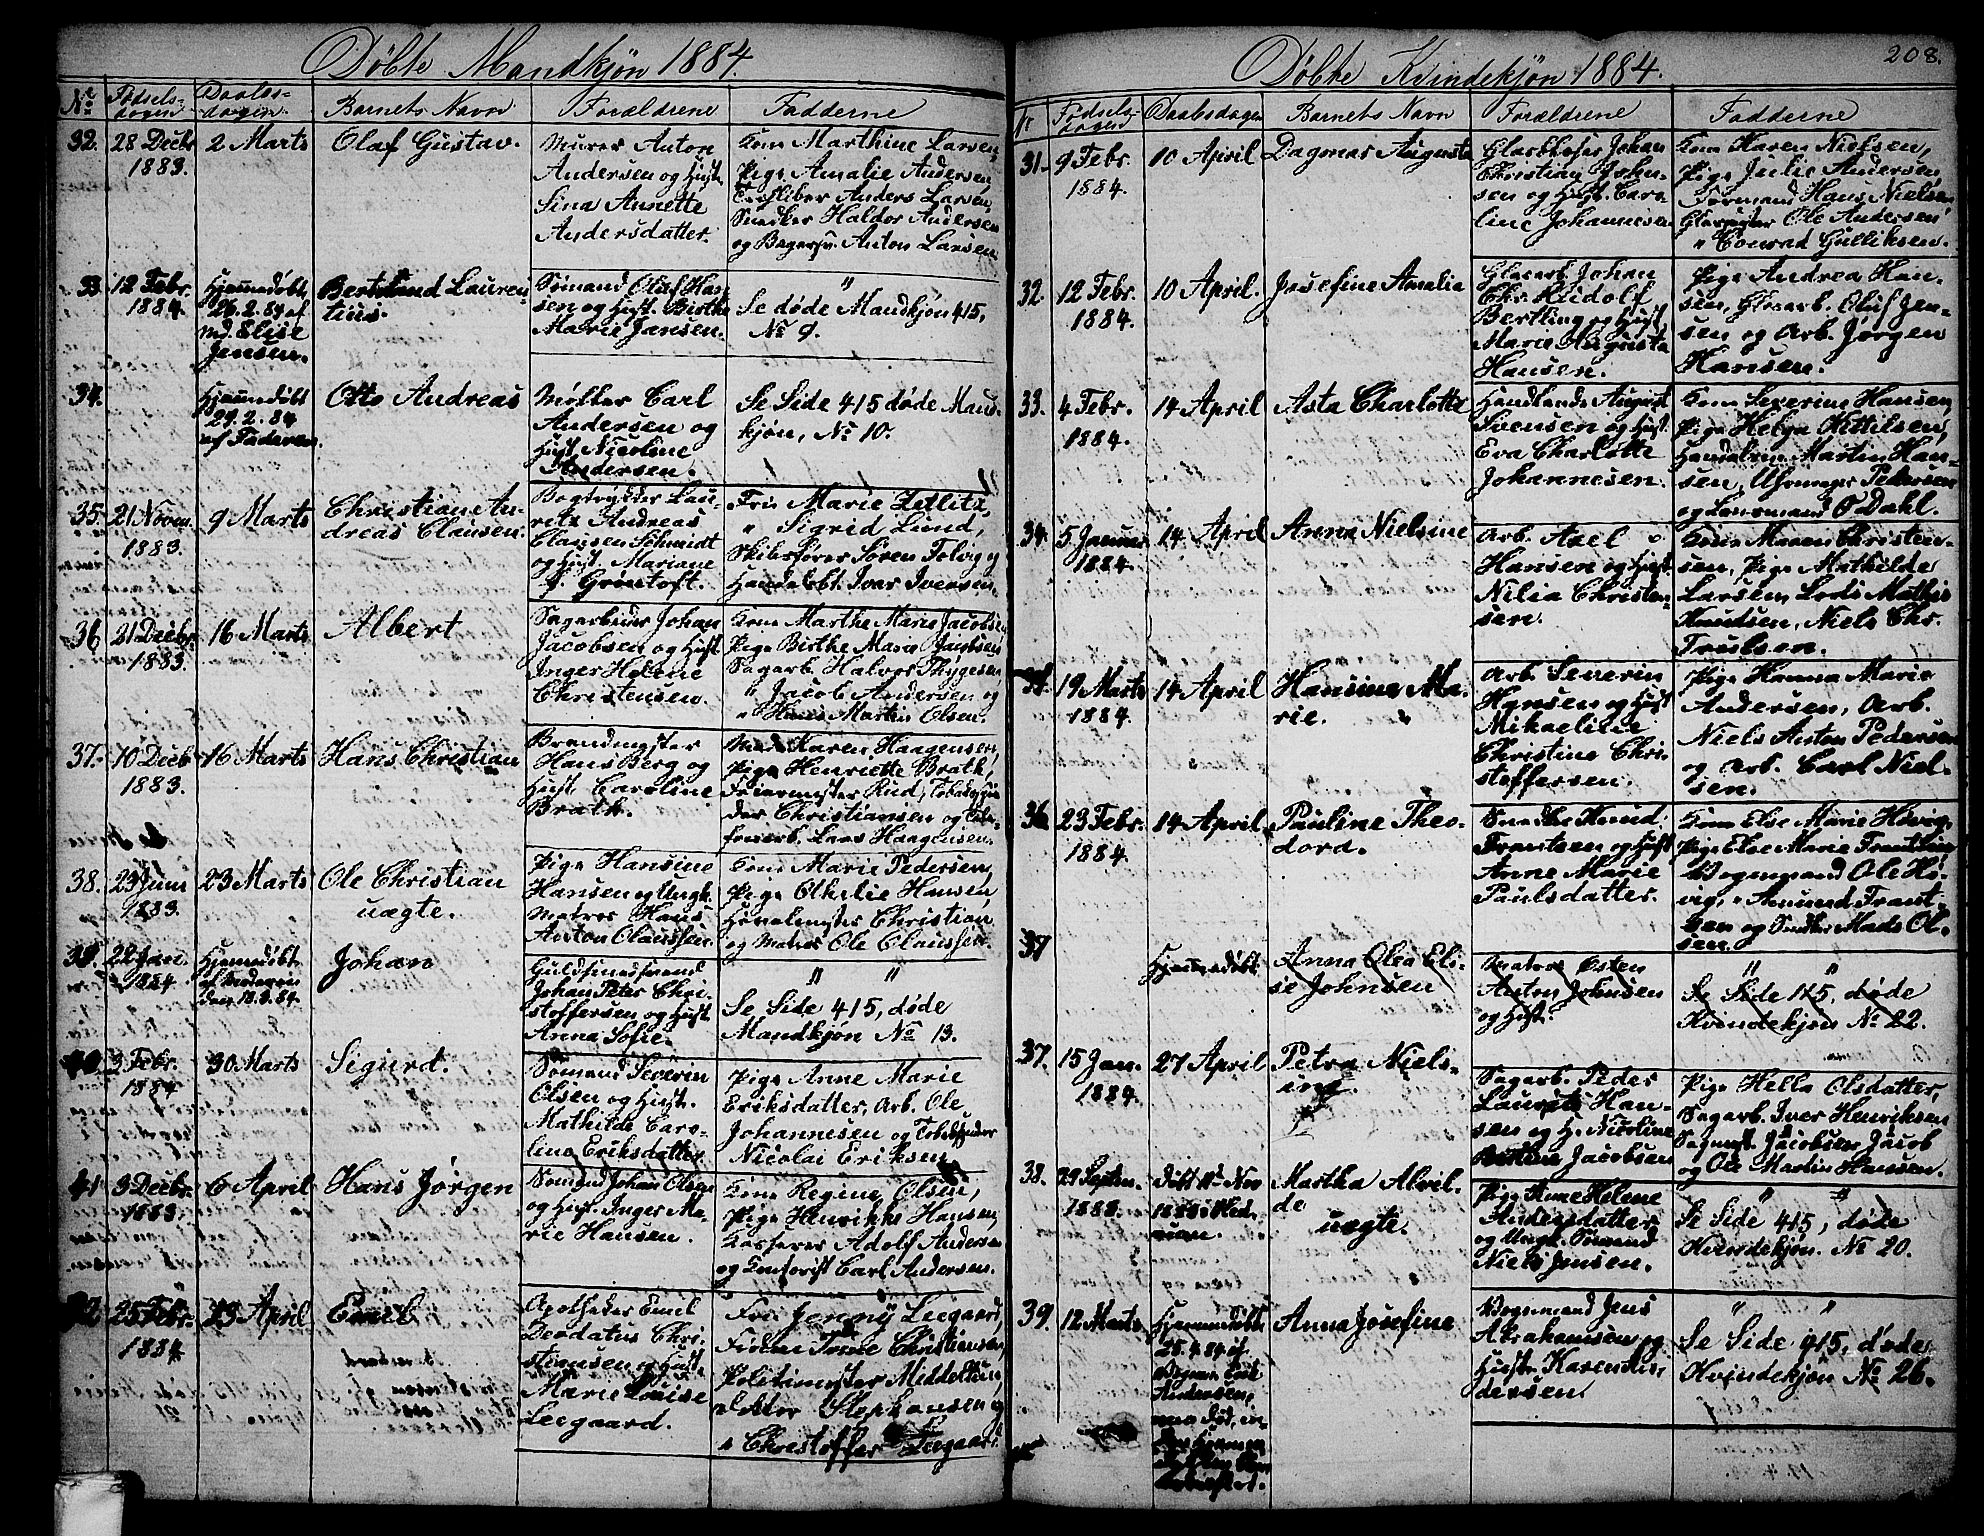 Døbte Mandkjøn 1884.
No
Fødselsdagen
Daabsdagen
Barnets Navn
Forældrene
Fadderne
32.
28 Decbr
1883.
2 Marts
Olaf Gustav.
Murer Anton
Andersen og Hust.
Lina Annette
Andersdatter.
Kone Marthine Larsen,
Pige Amalie Andersen,
Anders Larsen,
Snedker Haldor Andersen
og Bagersv. Anton Larsen.
33
12 Febr.
1884.
Hjemmedøbt
26.2.84 af
Md. Elise
Jensen.
Bertrand Lauren-
tius.
Sømand Olaf Han
sen og Hust. Birthe
Marie Jansen.
"
Se døde Mandkjøn 415,
No 9.
34.
Hjemmedøbt
29.2.84
af Faderen.
Otto Andreas
Møller Carl
Andersen og
Hust. Nicoline
Andersen.
Se Side 415 døde Mand-
kjøn, No 10.
35.
21 Novem.
1883.
9 Marts
Christian An-
dreas Clausen.
Bogtrykker Lau-
ritz Andreas
Clausen Schmidt
og Hust. Mariane
J. Grøntoft.
Fru Marie Zetlitz,
" Sigrid Lund,
Skibsfører Søren
Ivar Ivensen.
36
21 Decbr.
1883.
16 Marts
Albert
Sagarbeider Johan
Jacobsen og Hust.
Inger Helene
Christensen.
Kone Marthe Marie Jacobsen,
Pige Birthe Marie Jacobsen
Sagarb. Halvor Thygesen
" Jacob Andersen og
" Hans Martin Olsen.
37.
10 Decb
1883.
16 Marts
Hans Christian
Brandmester
Hans Berg og
Hust. Caroline
Brath.
Mad. Karen Haagensen,
Pige Henriette Brath,
der Christiansen og
Lars Haagensen.
38.
23 Juni
1883.
23 Marts
Ole Christian
uægte.
Pige Hansine
Hansen og Ungk.
Matros Hans
Anton Olaussen.
Kone Marie Pedersen,
Pige Othilie Hansen,
Christian
og Matros Ole Claussen.
39.
22 Jan.
1884
Hjemmedøbt
af Moderen
den 18.3.84.
Johan
Guldsmedsvend
Johan Peter Chri-
stoffersen og Hust.
Anna Sofie.
" "
Se Side 415, døde
Mandkjøn No 13.
40
3 Febr.
1884
30 Marts
Sigurd.
Sømand Severin
Olsen og Hust.
Mathilde Caro-
line Eriksdatter.
Pige Anne Marie
Eriksdatter, Arb. Ole
Johannesen og
Nicolai Eriksen.
41
3 Decbr.
1883.
6 April
Hans Jørgen
Sømand Johan Olsen
og Hust. Inger Ma-
rie Hansen.
Kone Regine Olsen,
Pige Henrikke Hansen,
Adolf Andersen
og Kontorist Carl Andersen.
42
25 Febr.
1884.
13 April
Emil
Apotheker Emil
Deodatus Chri-
stensen og Hust.
Marie Louise
Leegaard.
Fru Jenny Leegaard,
Christiansen,
Politimester Middelthun,
Doktor Stephansen og
" Christoffer Leegaard.
Døbte Kvindekjøn 1884.
208.
Nr
Fødselsdagen
Daabsdagen
Barnets Navn
Forældrene
Fadderne
31.
9 Febr.
1884.
10 April
Dagmar Augusta
Johan
Christian John-
sen og Hust. Caro
line Johannesen
Kone Karen Nielsen,
Pige Julie Andersen,
Formand Hans Nielsen
Ole Andersen
" Conrad Gulliksen.
32.
12 Febr.
1884.
10 April.
Josefine Amalia
Glasarb. Johan
Chr. Rudolf
Bertling og Hust
Marie Augusta
Hansen.
Pige Andrea Han-
sen, Glasarb. Oluf Jen-
sen og Arb. Jørgen
Hansen.
33.
4 Febr.
1884.
14 April
Asta Charlotte
Handlende August
Svensen og Hust.
Eva Charlotte
Johannesen.
Kone Severine Hansen,
Pige Helga Kittilsen,
Martin Han-
sen, Uhrmager Pedersen
og Lensmand O Dahl.
34.
5 Januar
1884.
14 April
Anna Nielsine
Arb. Axel
Hansen og Hust.
Nilia Christen-
sen.
Kone Maren Christen-
sen, Pige Mathilde
Larsen, Lods Mathis
Knudsen, Niels Chr.
Trulsen.
35.
19 Marts
1884.
14 April
Hansine Ma-
rie.
Arb. Severin
Hansen og Hust
Mikaeline
Christine Chri-
stoffersen.
Pige Hanna Marie
Andersen, Arb.
Niels Anton Pedersen
og Arb. Carl Niel-
sen.
36
23 Febr.
1884.
14 April
Pauline Theo-
dora.
Snedker Knud
Frantsen og Hust
Anne Marie
Paulsdatter.
Kone Else Marie Høvig,
Pige Else Marie Frantsen,
Vognmand Ole Hø-
vig, " Amund Frant-
sen og Snedker Mads Ol-
sen.
37
Hjemmedøbt
Anna Olea Eli-
se Johnsen
Matros Østen
Anton Johnsen
og Hust.
" "
Se Side 415, døde
Kvindekjøn No 22.
37.
15 Jan.
1884.
27 April
Petra Niels-
ine
Sagarb. Peder
Laurits Han-
sen og H. Nicoline
Bertine Jacobsen
Pige Hella Olsdatter,
Sagarb. Iver Henriksen
Jacobsen, Jacob
og Ole Martin Hansen.
38.
29 Septem.
1883.
Martha Alvil-
de
uægte.
Pige Anne Helene
Andersdatter
og Ungk. Sømand
Niels Jensen.
" "
Se Side 415, døde
Kvindekjøn. No 20.
39.
12 Marts
Hjemmedøbt
25.4.84 af
Andersen,
Anna Josefine
Vognmand Jens
Abrahamsen og
Hust. Karen An-
dersen.
" "
Se Side 415, døde
Kvindekjøn No 26.